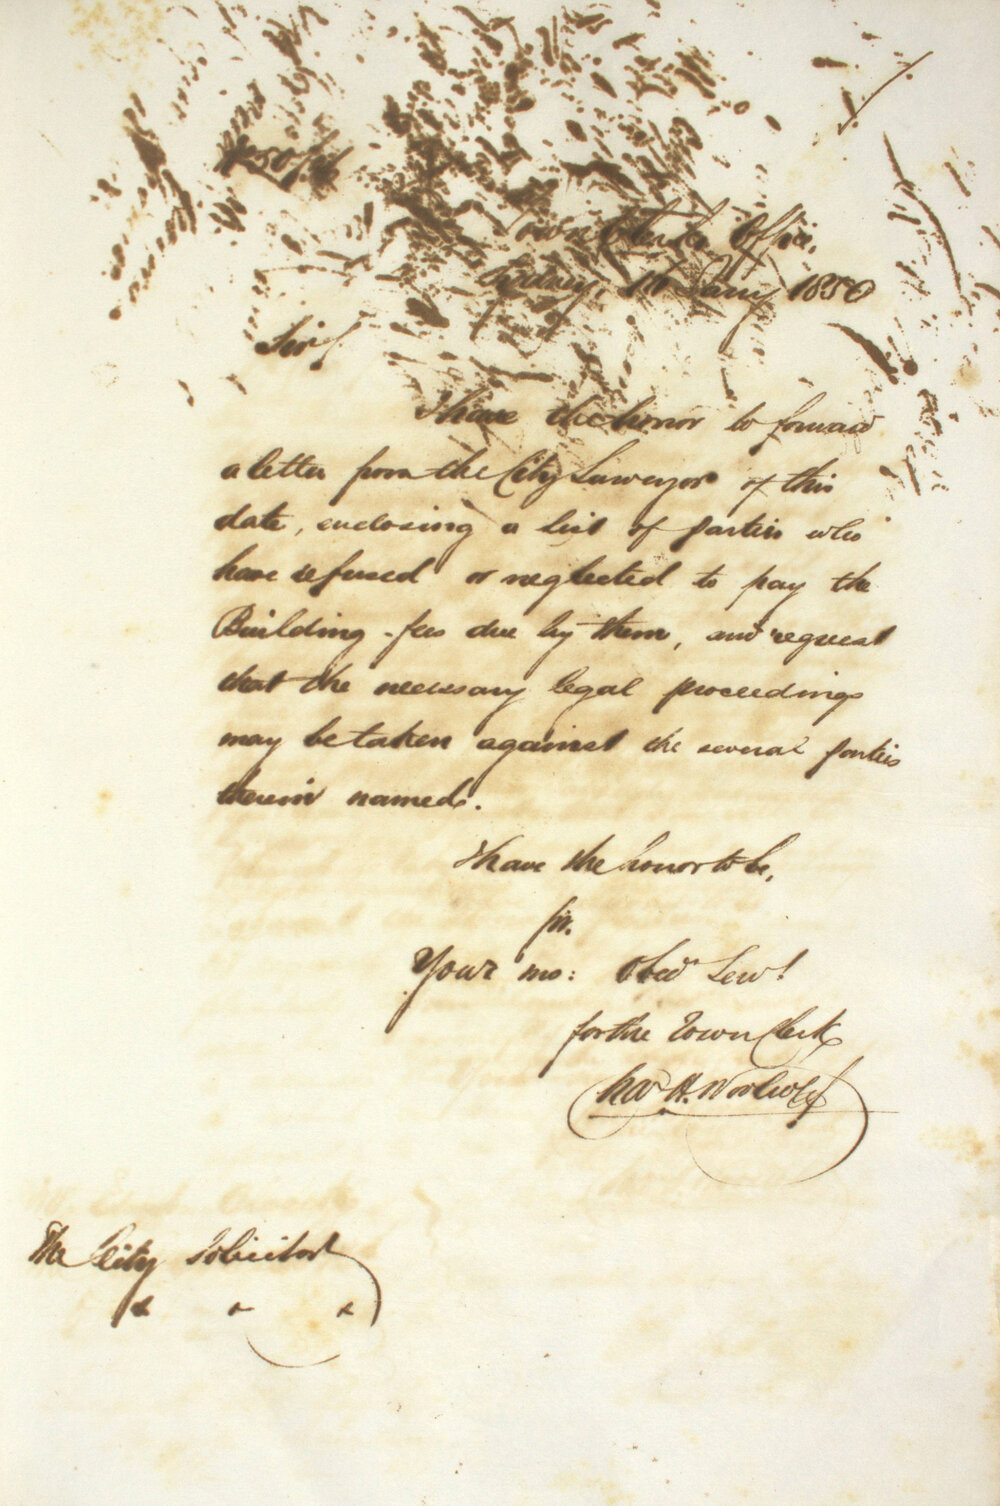 Town Clerk's Office,
Sydney, 16 Jany 1850
Sir,
I have the honor to forward
a letter from the City Surveyor of this
date, enclosing a list of parties who
have refused or neglected to pay the
Building-fees due by them, and request
that the necessary legal proceedings
may be taken against the several parties
therein named.
I have the honor to be,
Sir.
Your mo: Obed Servt
for the Town Clerk
Chas H. Woolcott
The City Solicitor